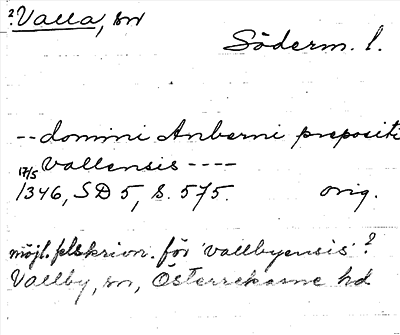 ? Valla, sn
Söderm. l.
-- domini Anberni prepositi
17/5 Vallensis ----
1346, SD 5, s. 575. orig.
möjl. felskrivn. för 'vallbyensis'?
Vallby, sn, Österrekarne hd